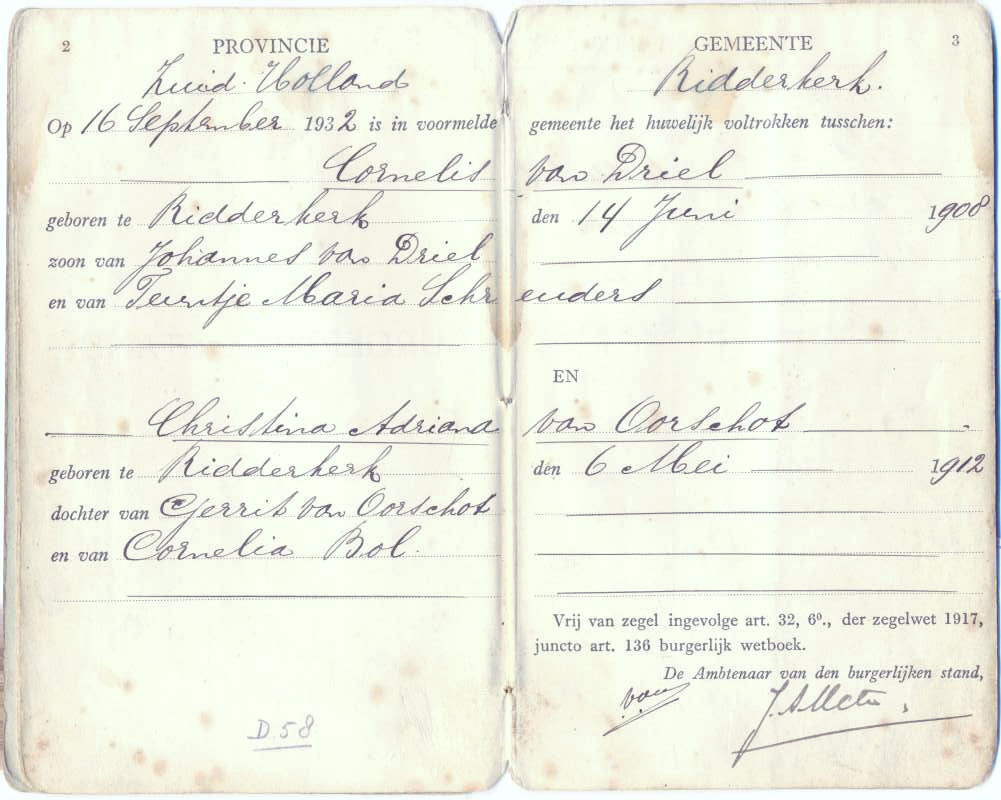 2 PROVINCIE GEMEENTE 3
Zuid-Holland Ridderkerk.
Op 16 September 1932 is in voormelde gemeente het huwelijk voltrokken tusschen:
Cornelis van Driel
geboren te Ridderkerk den 14 Juni 1908
zoon van Johannes van Driel
en van Teuntje Maria Schreuders
EN
Christina Adriana van Oorschot
geboren te Ridderkerk den 6 Mei 1912
dochter van Gerrit van Oorschot
en van Cornelia Bol.
Vrij van zegel ingevolge art. 32, 6º., der zegelwet 1917,
juncto art. 136 burgerlijk wetboek.
De Ambtenaar van den burgerlijken stand,
D.58